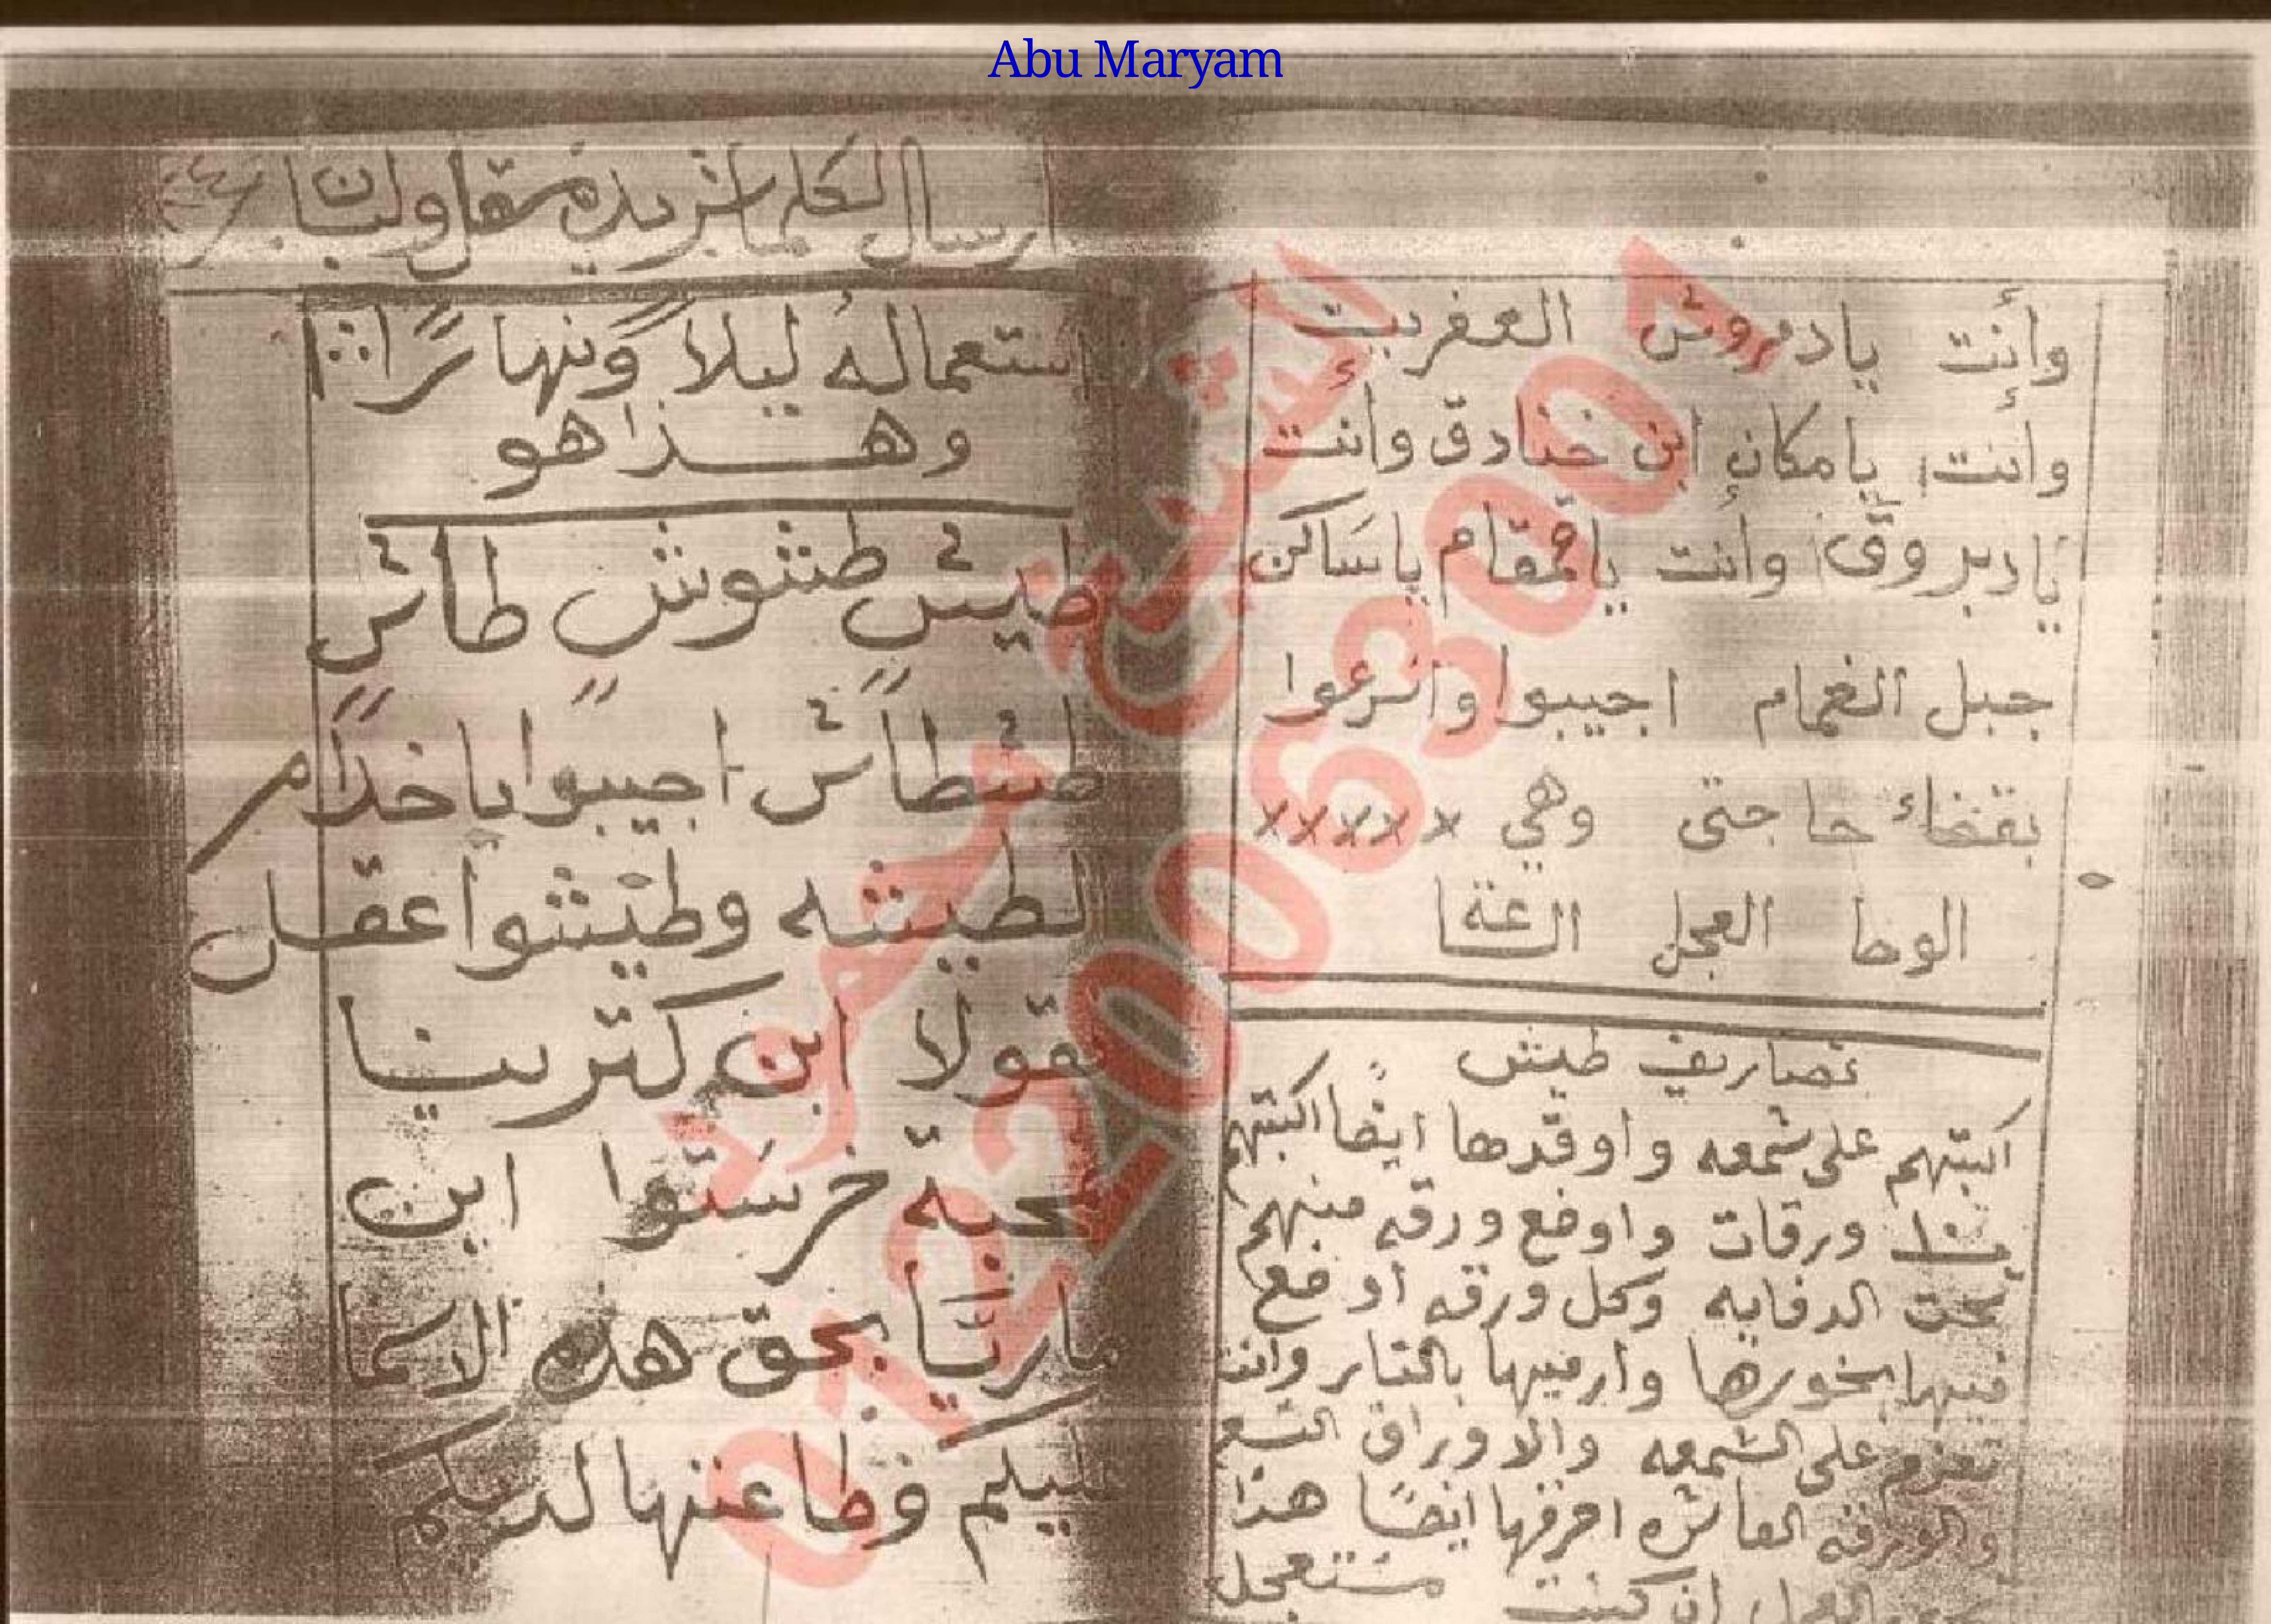 Abu Maryam
وأنت يادمروش العفريت
وأنت يامكان ابن خنادق وأنت
يادبروق وأنت ياقمقام ياساكن
جبل الغمام اجيبوا واسرعوا
بقضاء حاجتى وهي xxxxx
الوحا العجل الساعة
تصاريف طيش
اكتبهم على شمعه واوقدها ايضا اكتبهم
ورقات واوضع ورقه منهم
تحت الدفايه وكل ورقه اوضع
فيها بخورها وارميها بالنار وانت
تعزم على الشمعه والاوراق التسع
والورقه العاشره احرقها ايضًا هذا
العجل ان كنت مستعجل
ارسال لكل ماتريده
ستعماله ليلاً ونهاراً
وهذا هو
طيش طشوش طاش
طشطاش اجيبوا ياخدام
لطيشه وطيشوا عقل
ابن كترينا
خرستوا ابن
ماريا بحق هذه الاسما
عليكم وطاعتها لديكم
الشيخ
01220063004